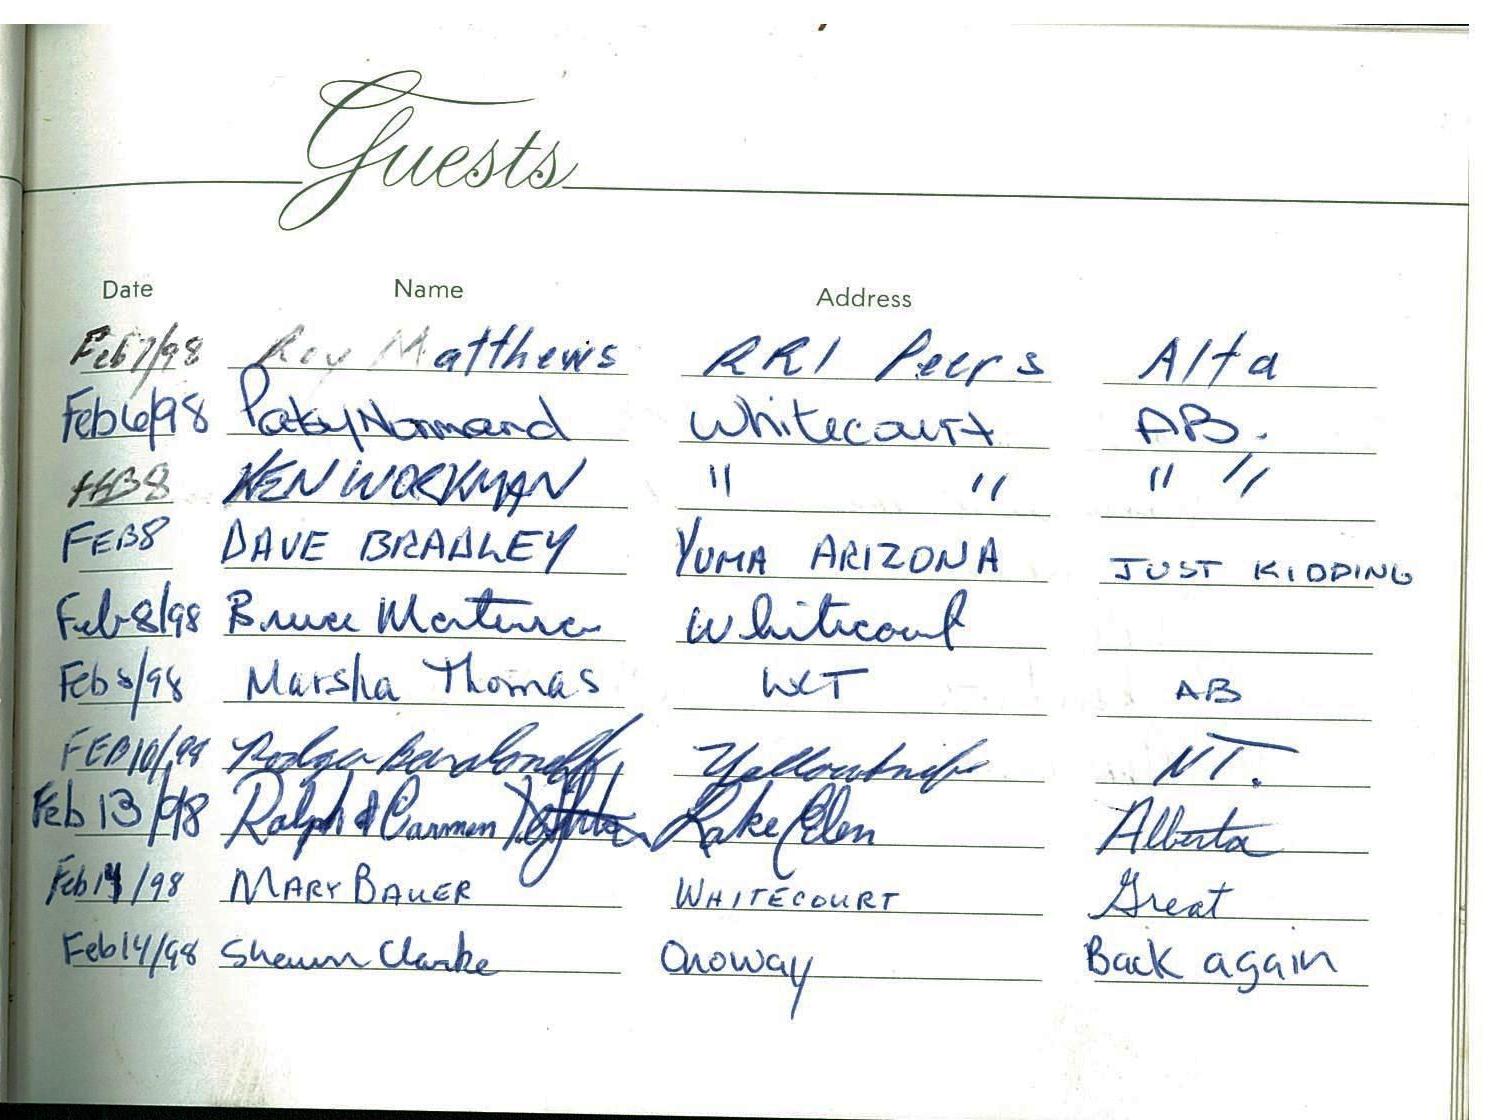 Guests
Date Name Address
Feb 7/98 Roy Matthews RR1 Peers Alta
Feb 6/98 Patsy Normand Whitecourt AB.
FEB 8 KEN WORKMAN " " " "
FEB 8 DAVE BRADLEY YUMA ARIZONA JUST KIDDING
Feb 8/98 Bruce Whitecourt
Feb 8/98 Marsha Thomas WCT AB
FEB 10/98 Rodger Yellowknife NT.
Feb 13/98 Ralph & Carmen Lake Eden Alberta
Feb 14/98 MARY BAUER WHITECOURT Great
Feb 14/98 Shawn Clarke Onoway Back again